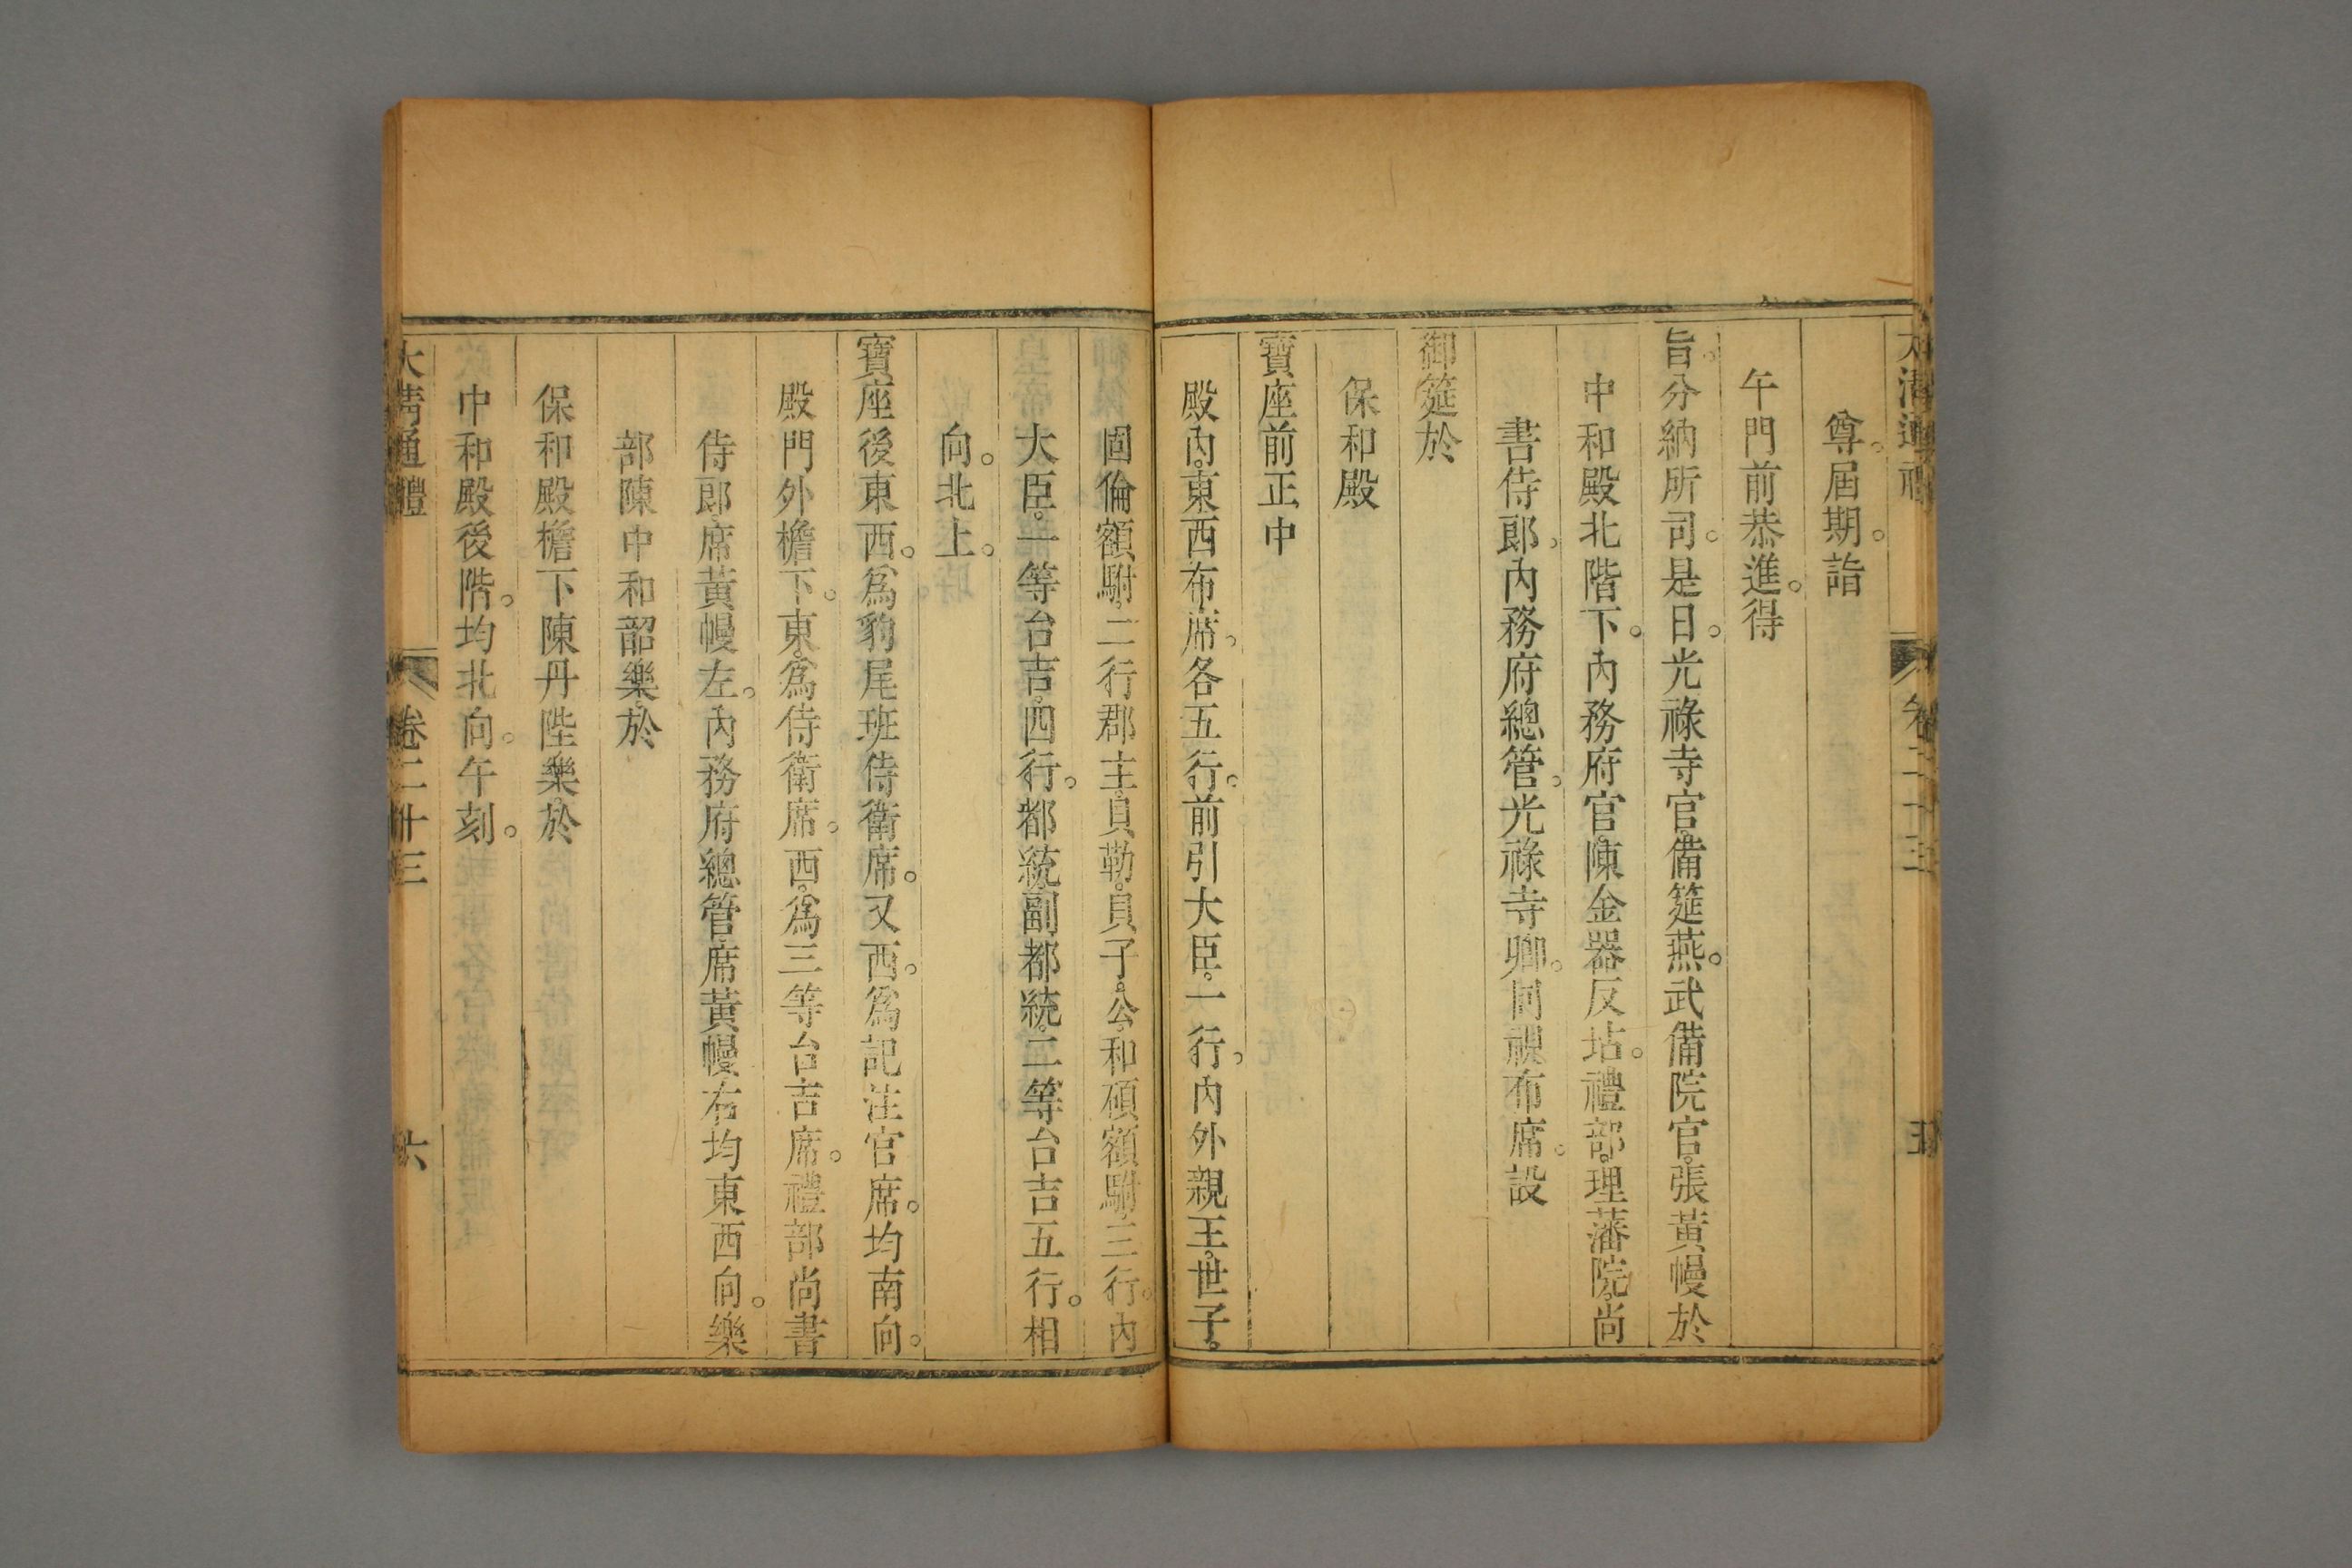 大清通禮 卷二十三 五
尊。屆期。詣
午門前恭進。得
旨。分納所司。是日。光祿寺官。備筵燕。武備院官。張黃幔於
中和殿北階下。內務府官。陳金器反坫。禮部。理藩院。尚
書侍郎。內務府總管。光祿寺卿。同視布席。設
御筵於
保和殿
寶座前正中
殿內。東西布席。各五行。前引大臣。一行。內外親王。世子。
固倫額駙。二行郡主。貝勒。貝子。公。和碩額駙。三行。內
大臣。一等台吉。四行。都統。副都統。二等台吉五行。相
向。北上。
寶座後東西。爲豹尾班侍衛席。又西。爲記注官席。均南向。
殿門外檐下。東。爲侍衛席。西。爲三等台吉席。禮部尚書
侍郎席黃幔左。內務府總管席黃幔右均東西向。樂
部陳中和韶樂。於
保和殿檐下陳丹陛樂。於
中和殿後階。均北向。午刻。
大淸通禮 卷二十三 六